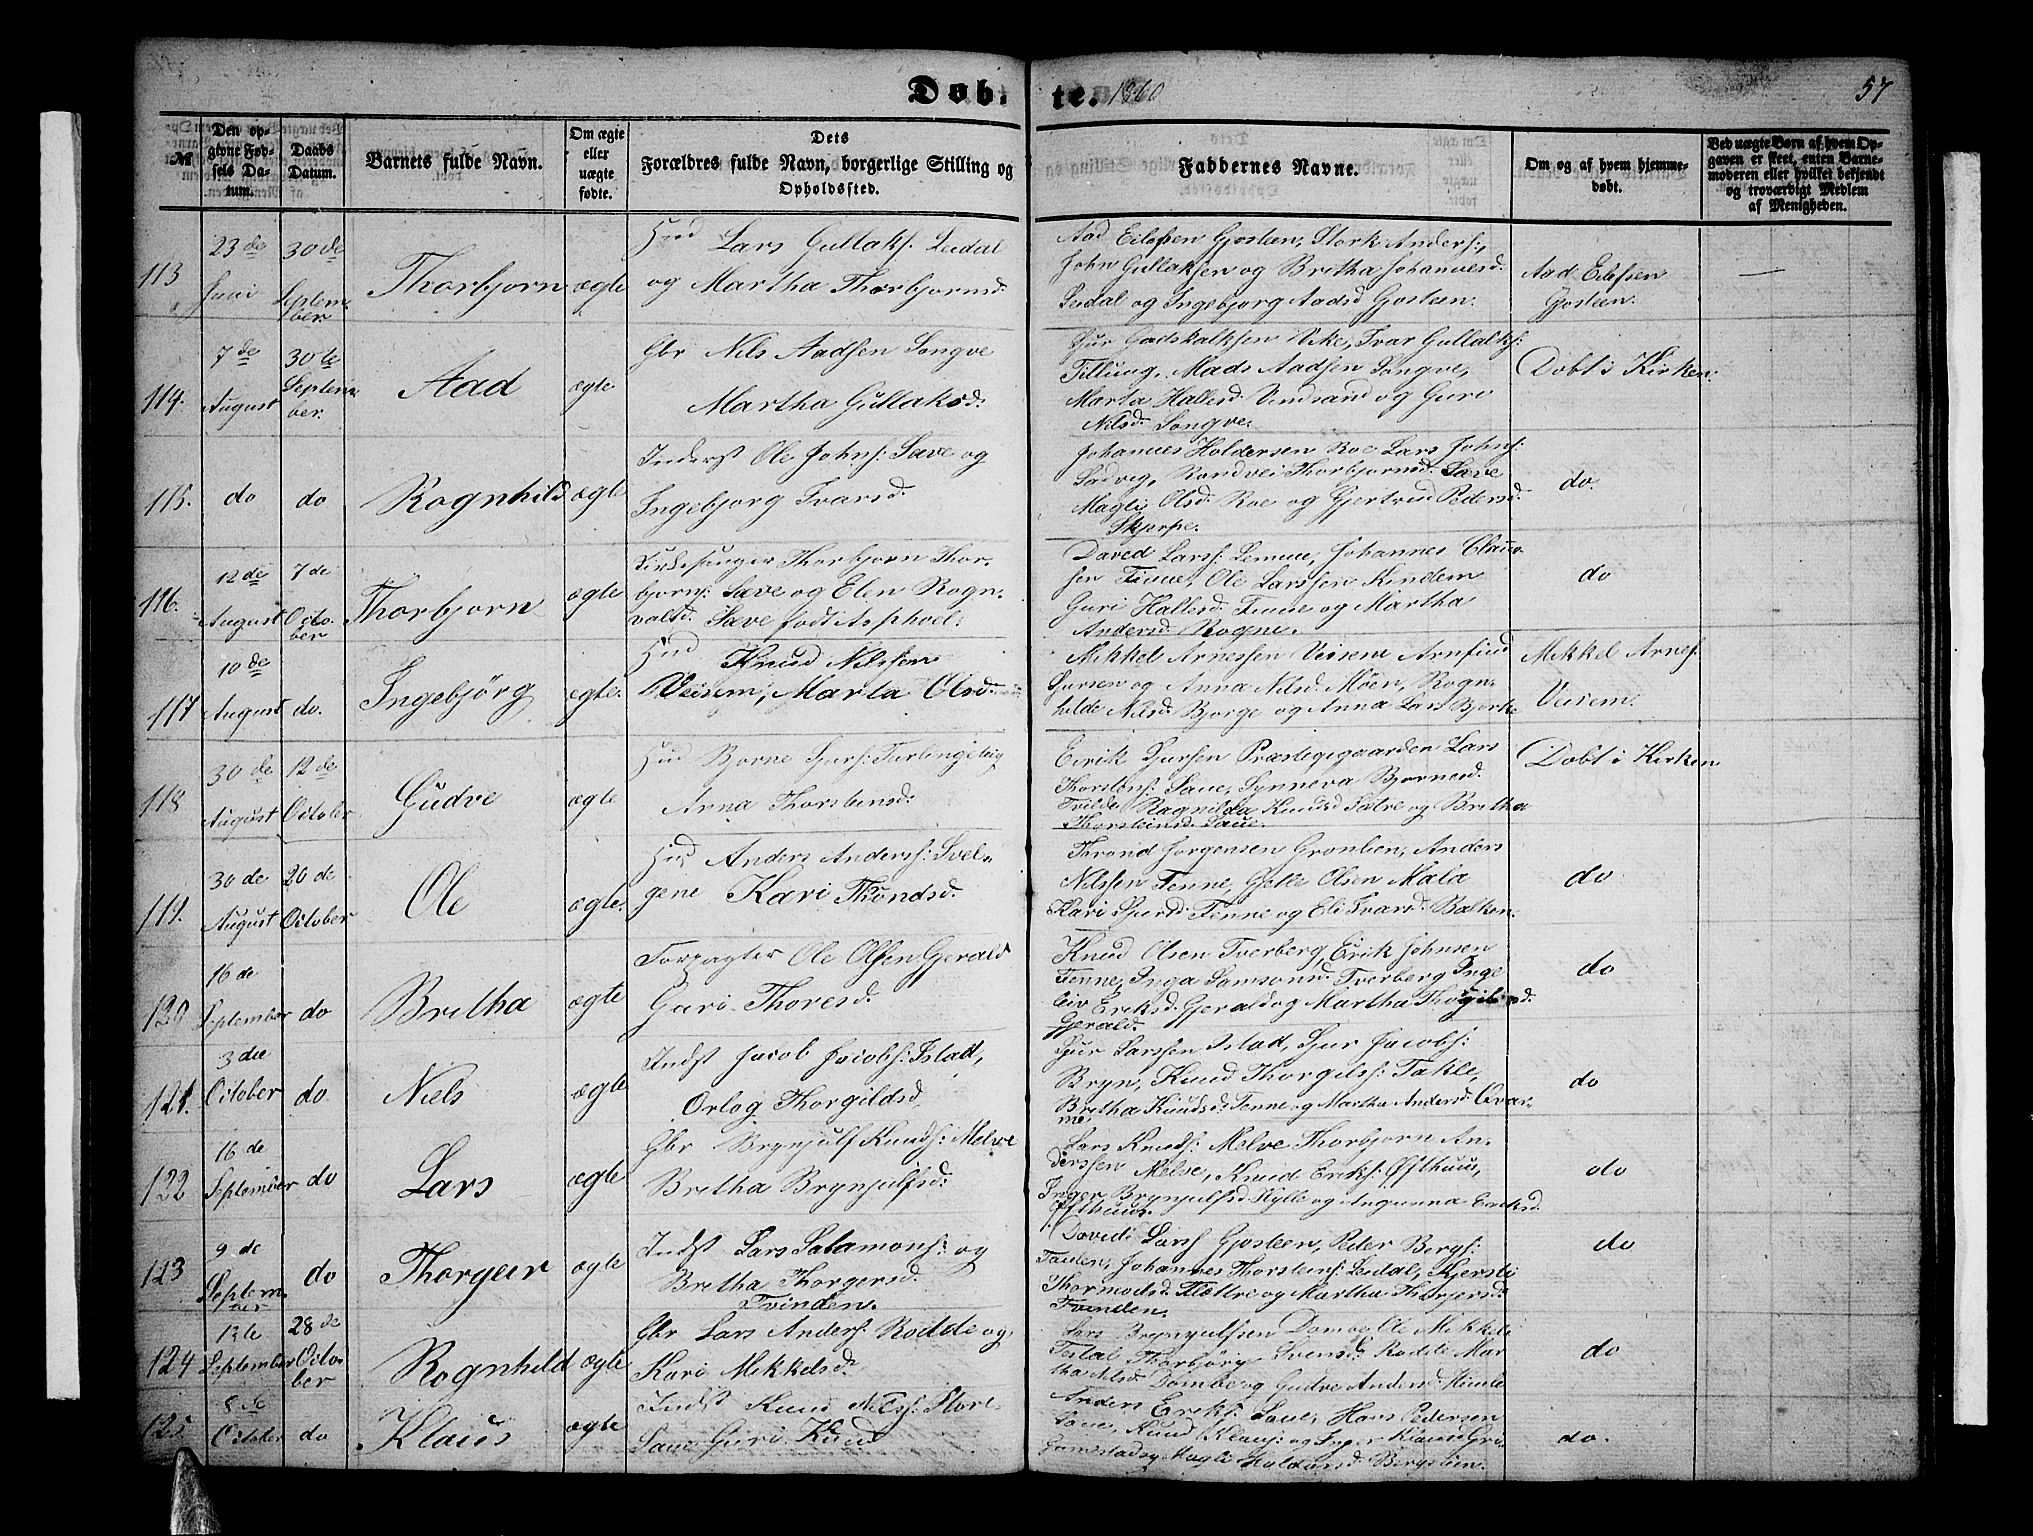 Døb-te. 1860
57
№
Den opgivne Fødsels Datum.
Daabs Datum.
Barnets fulde Navn.
Om ægte eller uægte fødte.
Dets Forældres fulde Navn, borgerlige Stilling og Opholdssted.
Faddernes Navne.
Om og af hvem hjemmedøbt.
Ved uægte Børn af hvem Opgaven er skeet, enten Barnemoderen eller hvilket bekjendt og troværdigt Medlem af Menigheden.
113
23de Juni
30de September
Thorbjorn
ægte
Lars Gullaks: Leidal
og Martha Thorbjornsd.
Aad Eilefsen Gjosteen, Stork Anders:,
John Gullaksen og Britha Johannesd.
Leidal og Ingebjorg Aadsd Gjosteen.
Aad Eilefsen
Gjosteen.
—
114.
7de August
30te September
Aad
ægte
Gbr Nils Aadsen Longve
Martha Gullaksd.
Gjur Gadskalksen Vike, Ivar Gullaks:
Tillung, Mads Aadsen Longve,
Marta Hallesd. og Guri
Nilsd. Longve.
Døbt i Kirken.
115.
do
do
Rognhild
ægte
Inderst Ole Johns: Save og
Ingebjorg Ivarsd.
Johannes Holdersen Roe Lars Johns:
Sadveg, Randvei Thorbjornsd. Save
Magli Olsd. Roe og Gjertrud Pedersd.
Skjerpe.
do.
116.
12de August
7de October
Thorbjorn
ægte
Kirkesanger Thorbjorn Thor-
bjorns: Save og Elen Rogn-
valtd. Save født Asphoel.
David Lars: Lemme, Johannes Claus-
sen Finne, Ole Larssen Kindem
Guri Hallesd. Finne og Martha
Andersd. Rogne.
do
117
10de August
do.
Ingebjörg
ægte.
Knud Nilssen
Veisem, Marta Olsd.
Mikkel Arnessen Veisem Arnfind
Sjursen og Anna Nilsd. Möen, Rogn-
hilde Nilsd. Bjorge og Anna Lars Bjorke
Mikkel Arnes:
Veisem.
118
30de August
12de October
Gudve
ægte
Bjorne Sjurs:
Anna Thorstensd.
Eirik Sjursen Præstegegaarden Lars
Thorstens: Saue, Synneva Bjornesd.
Tvilde Ragnilda Knudsd Sætve og Britha
Thorsteinsd. Saue.
Døbt i Kirken
119.
30de August
20de October
Ole
ægte.
Anders Anders: Svel-
gene Kari Thöndsd.
Thrond Jorgensen Gronlien, Anders
Nilssen Tenne, Gjelle Olsen Mala
Kari Sjursd: Tenne og Eli Ivarsd. Balken.
do
120
16de September
do
Britha
ægte
Forpagter Ole Olsen Gjerald
Guri Thoresd.
Knud Olsen Tverberg, Eirik Johnsen
Tenne, Inga Samsonsd. Tverberg Inge
leiv Eriksd. Gjerald og Martha
Gjerald.
do
121.
3die October
do
Niels
ægte
Indst Jacob Jacobs: Istad,
Orlog Thorgildsd.
Gjur Larssen Istad, Sjur Jacobs:
Bryn, Knud Thorgils: Takle,
Britha Knudsd: Tenne og Martha Andersd.
do
122
16de September
do
Lars
ægte
Gbr Brynjulf Knuds: Melve
Britha Brynjulfsd.
Lars Knuds: Melve Thorbjorn An-
derssen Melve, Knud Eriks: Øfthuus,
Inger Brynjulfsd. Kylle og Ingunna Eriksd.
Øfthuus.
do
123
9de September
do
Thorgeir
ægte
Indst Lars Salamons: og
Britha Thorgersd.
Tvinden.
David Lars Gjosteen, Peder Bergs:
Taulen, Johannes Thorstens: Leidal, Kjersti
Thormodsd. og Martha
Tvinden.
do
124
13te September
28de October
Rognhild
ægte
Gbr Lars Anders: Rodde og
Kari Mikkelsd.
Lars Brynjulfsen Dombe, Ole Mikkels
Testal Thorbörg Svensd. Rodde Mar
tha Nilsd. Dombe og Gudve Andersd. Himle
do
125
8de October
do
Klaus
ægte
Indst Knud Nils: Store-
Saue Guri Knud
Anders Eriks: Saue, Hans Pedersen
Saue, Knud Klaus: og Inger
Magli Bergsteen.
do.